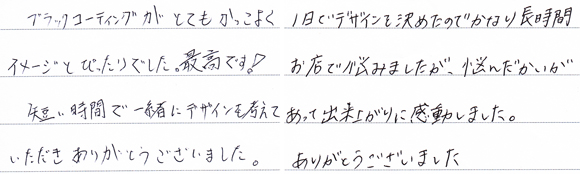 ブラックコーティングがとてもかっこよく
イメージとぴったりでした。最高です!
短い時間で一緒にデザインを考えて
いただきありがとうございました。
1日でデザインを決めたのでかなり長時間
お店で悩みましたが、悩んだかいが
あって出来上がりに感動しました。
ありがとうございました